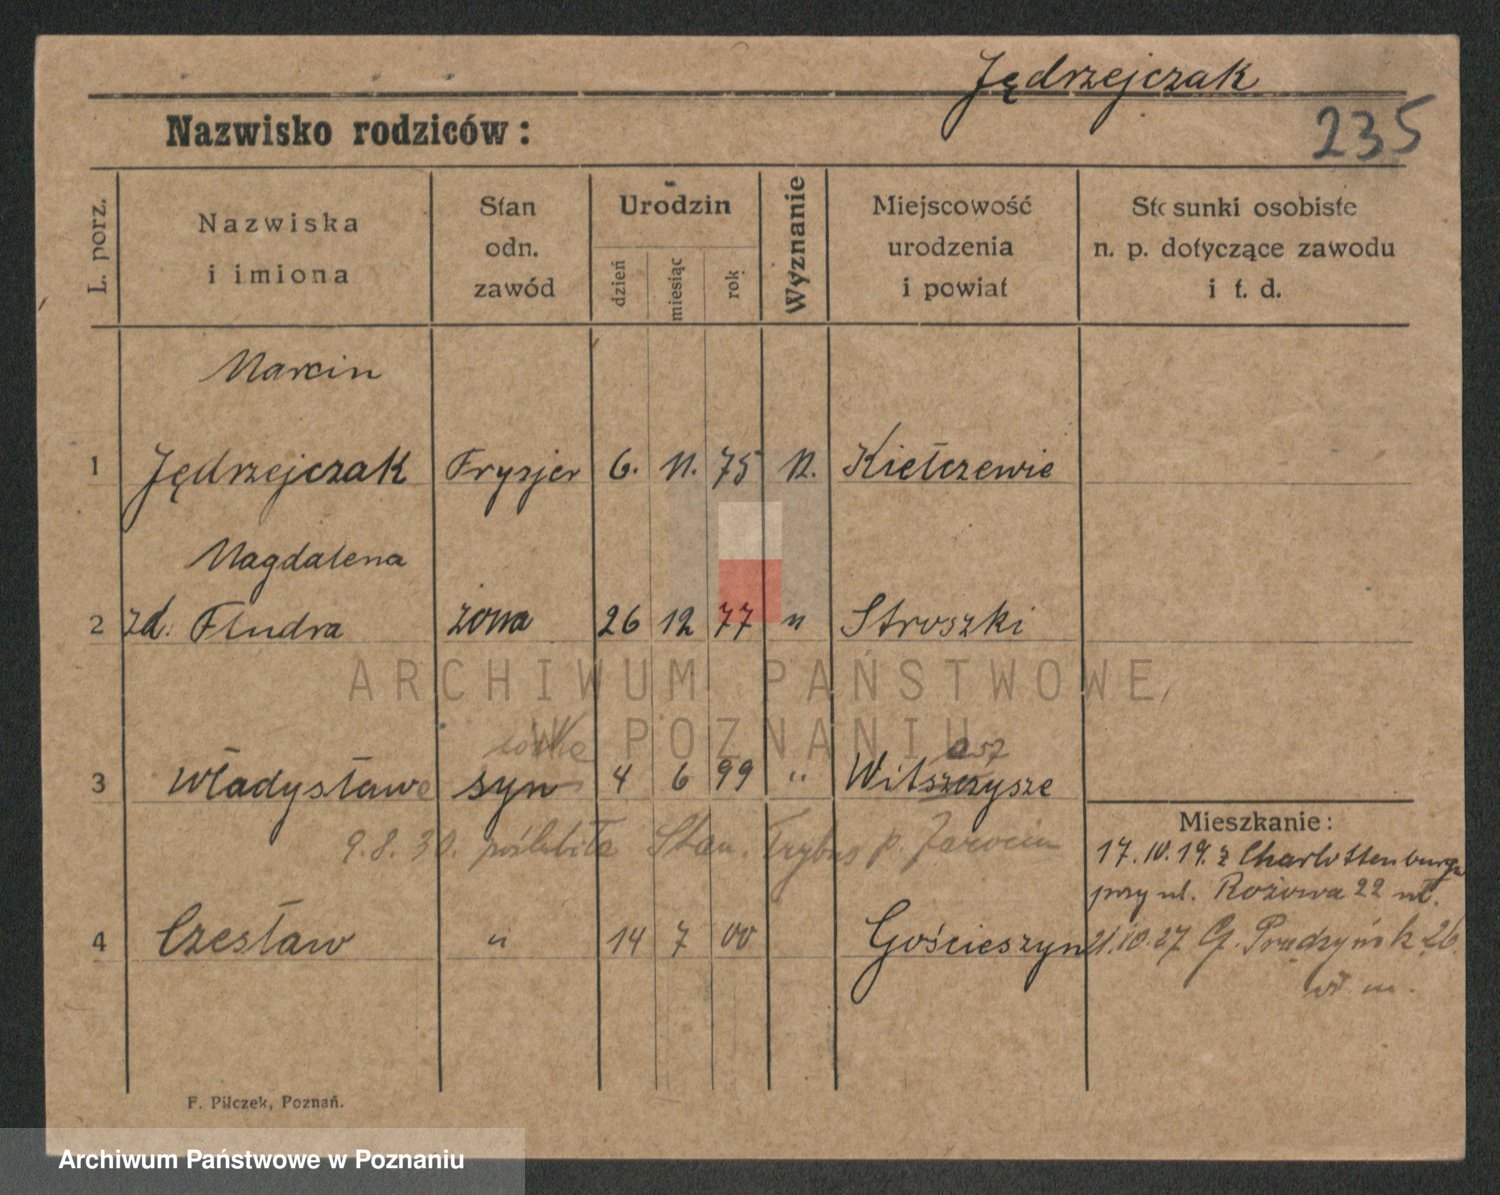 Jędrzejczak
235
Nazwisko rodziców:
L. porz.
Nazwiska
i imiona
Stan
odn.
zawód
Urodzin
dzień
miesiąc
rok
Wyznanie
Miejscowość
urodzenia
i powiat
Stosunki osobiste
n. p. dotyczące zawodu
i t. d.
Marcin
1 Jędrzejczak Fryzjer 6. 11. 75 Kiełczewie
Magdalena
2 zd. Fludra żona 26 12 77 " Stroszki
3 Władysława syn 4 6 99 "
9.8.30. poślubiła Stan. p. Jarocin
4 Czesław " 14 7 00 Gościeszyn
Mieszkanie:
17.10.19. z Charlottenburga
przy ul. Rożowa 22
21.10.27 G. Prądzyńsk 26
F. Pilczek, Poznań.
ARCHIWUM PAŃSTWOWE
W POZNANIU
Archiwum Państwowe w Poznaniu